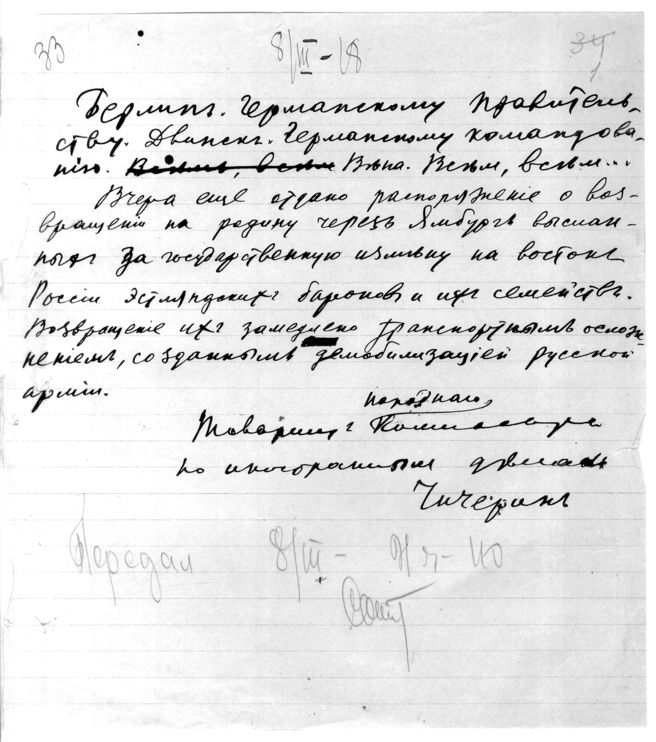 33
8/III-18
34
1
Берлинъ. Германскому правитель-
ству. Двинскъ. Германскому командова-
нію. Всѣмъ, всѣм Вѣна. Всѣм, всѣм...
Вчера еще отдано распоряженіе о воз-
вращеніи на родину черезъ Ямбургъ выслан-
ныхъ за государственную измѣну на востокъ
Россіи эстляндскихъ бароновъ и ихъ семействъ.
Возвращеніе ихъ замедлено транспортнымъ ослож-
неніемъ, созданнымъ демобилизаціей русской
арміи.
народнаго
Товарищъ Комиссара
по иностранным дѣламъ
Чичеринъ
Передал 8/III-